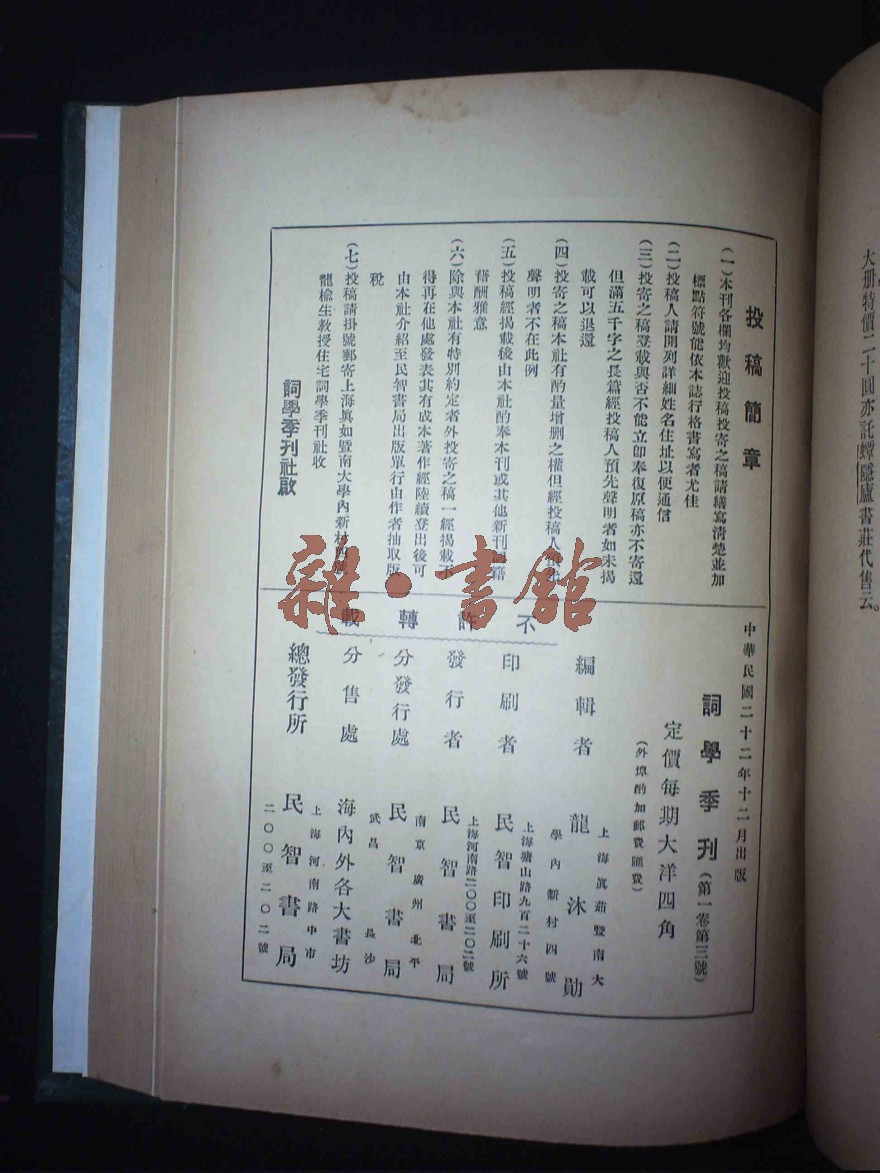 大册特價二十圓亦託蟫隱廬書莊代售云。
投稿簡章
(一)本刊各欄均歡迎投稿投寄之稿請繕寫清楚並加
標點符號能依本誌行格書寫者尤佳
(二)投稿人請開列詳細姓名住址以便通信
(三)投寄之稿登載與否不能立卽奉復原稿亦不寄還
但滿五千字之長篇經投稿人預先聲明者如未揭
載可以退還
(四)投寄之稿本社有酌量增删之權但經投稿人預先
聲明者不在此例
(五)投稿經揭載後由本社酌奉本刊或其他新刊詞籍
藉酬雅意
(六)除與本社有特別約定者外投寄之稿一經揭載不
得再在他處發表其有成本著作經陸續登出後可
由本社介紹至民智書局出版單行由作者抽取版
稅
(七)投稿請掛號郵寄上海眞如暨南大學內新村四號
龍楡生教授住宅詞學季刊社收
詞學季刊社啟
中華民國二十二年十二月出版
詞學季刊(第一卷第三號)
定價每期大洋四角
(外埠酌加郵費匯費)
不許轉載
編輯者 龍沐勛
上海眞茹暨南大
學內新村四號
印刷者 民智印刷所
上海塘山路九百二十六號
發行者 民智書局
上海河南路二〇〇至二〇二號
分發行處 民智書局
南京 廣州 北平
武昌 長沙
分售處 海內外各大書坊
總發行所 民智書局
上海河南路中市
二〇〇至二〇二號
雜·書館